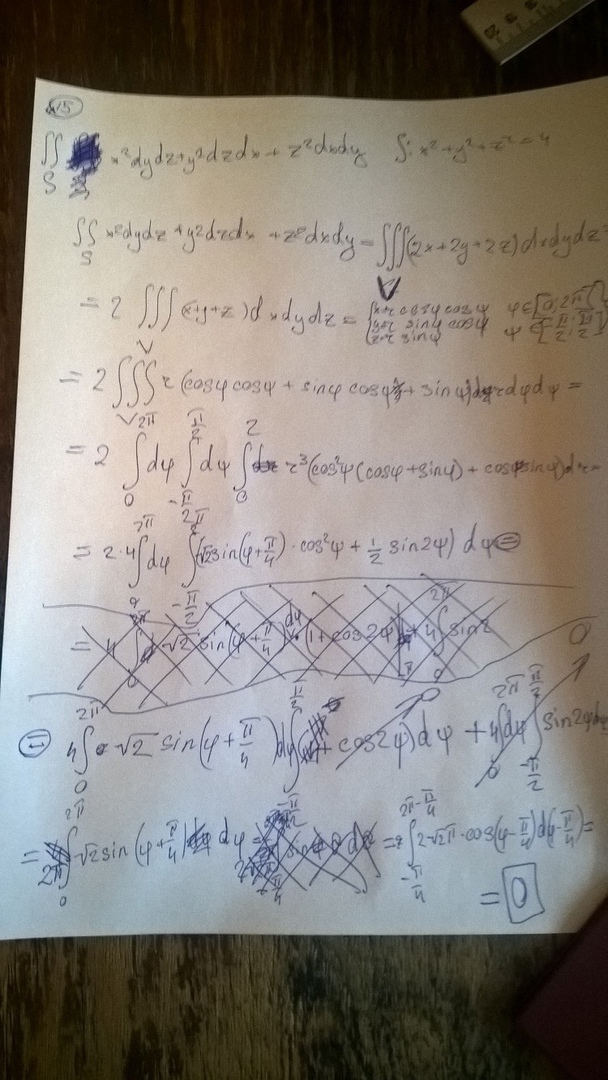 №15
∬_S x²dydz+y²dzdx+z²dxdy S: x²+y²+z²=4
∬_S x²dydz+y²dzdx+z²dxdy=∭_V(2x+2y+2z)dxdydz=
=2∭_V(x+y+z)dxdydz= {x=r cosφ cosψ y=r sinφ cosψ z=r sinψ φ∈[0;2π] ψ∈[-π/2;π/2]
=2∭_V r(cosφcosψ+sinφcosψ+sinψ) drdφdψ=
=2∫_0^{2π}dφ∫_{-π/2}^{π/2}dψ∫_0^2 r³(cos²ψ(cosφ+sinφ)+cosψsinψ)dr=
=2·4∫_0^{2π}dφ∫_{-π/2}^{π/2}(√2sin(φ+π/4)·cos²ψ+½sin2ψ)dψ⊜
⊜ 4∫_0^{2π}√2sin(φ+π/4)dφ∫_{-π/2}^{π/2}(+cos2ψ)dψ+4∫_0^{2π}dφ∫_{-π/2}^{π/2}sin2ψdψ
=∫_0^{2π}√2sin(φ+π/4)dφ=∫_{-π/4}^{2π-π/4}2√2π·cos(φ-π/4)d(φ-π/4)=
=0